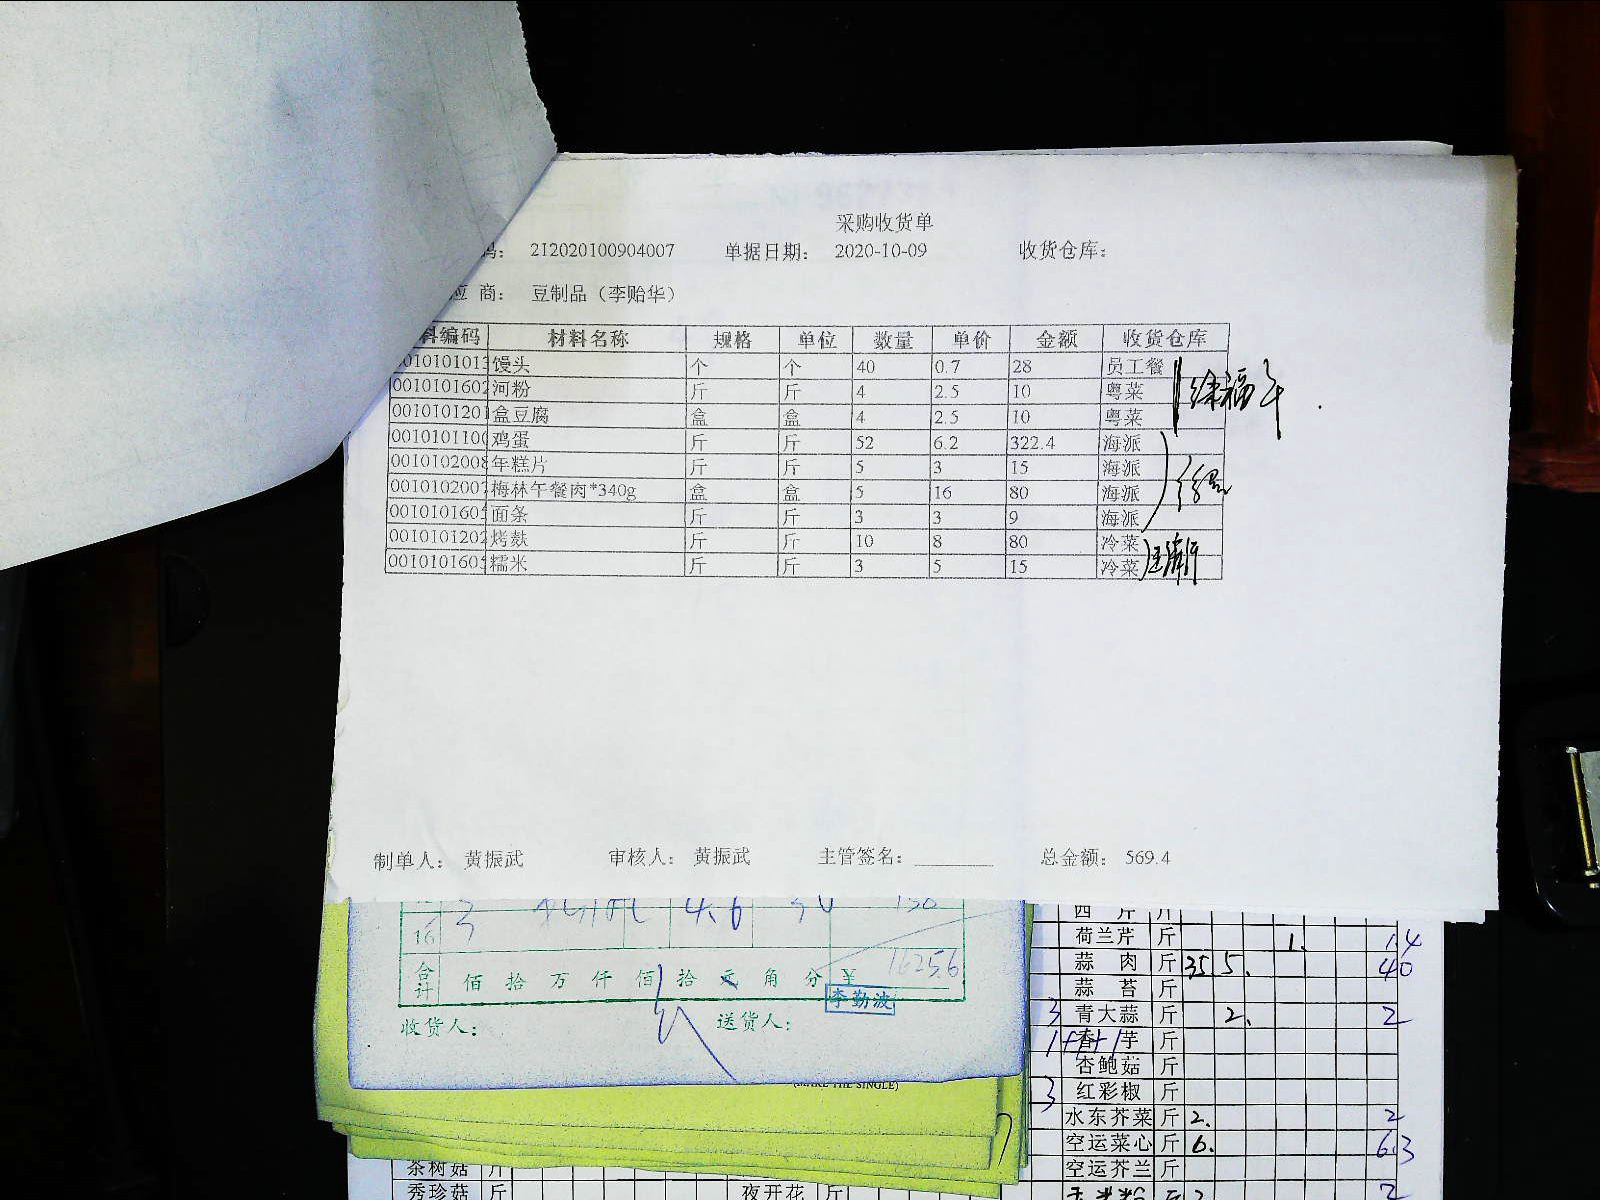 采购收货单
码： 212020100904007 单据日期： 2020-10-09 收货仓库：
应 商： 豆制品（李贻华）
料编码 材料名称 规格 单位 数量 单价 金额 收货仓库
001010101 馒头 个 个 40 0.7 28 员工餐
0010101602 河粉 斤 斤 4 2.5 10 粤菜
001010120 盒豆腐 盒 盒 4 2.5 10 粤菜
001010110 鸡蛋 斤 斤 52 6.2 322.4 海派
0010102008 年糕片 斤 斤 5 3 15 海派
0010102007 梅林午餐肉*340g 盒 盒 5 16 80 海派
001010160 面条 斤 斤 3 3 9 海派
0010101202 烤麸 斤 斤 10 8 80 冷菜
001010160 糯米 斤 斤 3 5 15 冷菜
制单人： 黄振武 审核人： 黄振武 主管签名： 总金额： 569.4
16
合计 佰 拾 万 仟 佰 拾 元 角 分 ¥ 16256
李勤波
收货人： 送货人：
(MAKE THE SINGLE)
西 芹 斤
荷兰芹 斤 1. 1.4
蒜 肉 斤 35 5. 40
蒜 苔 斤
3 青大蒜 斤 2. 2
香 芋 斤
杏鲍菇 斤
3 红彩椒 斤
水东芥菜 斤 2. 2
空运菜心 斤 6. 6.3
空运芥兰 斤
茶树菇 斤
秀珍菇 斤 夜开花 斤 2